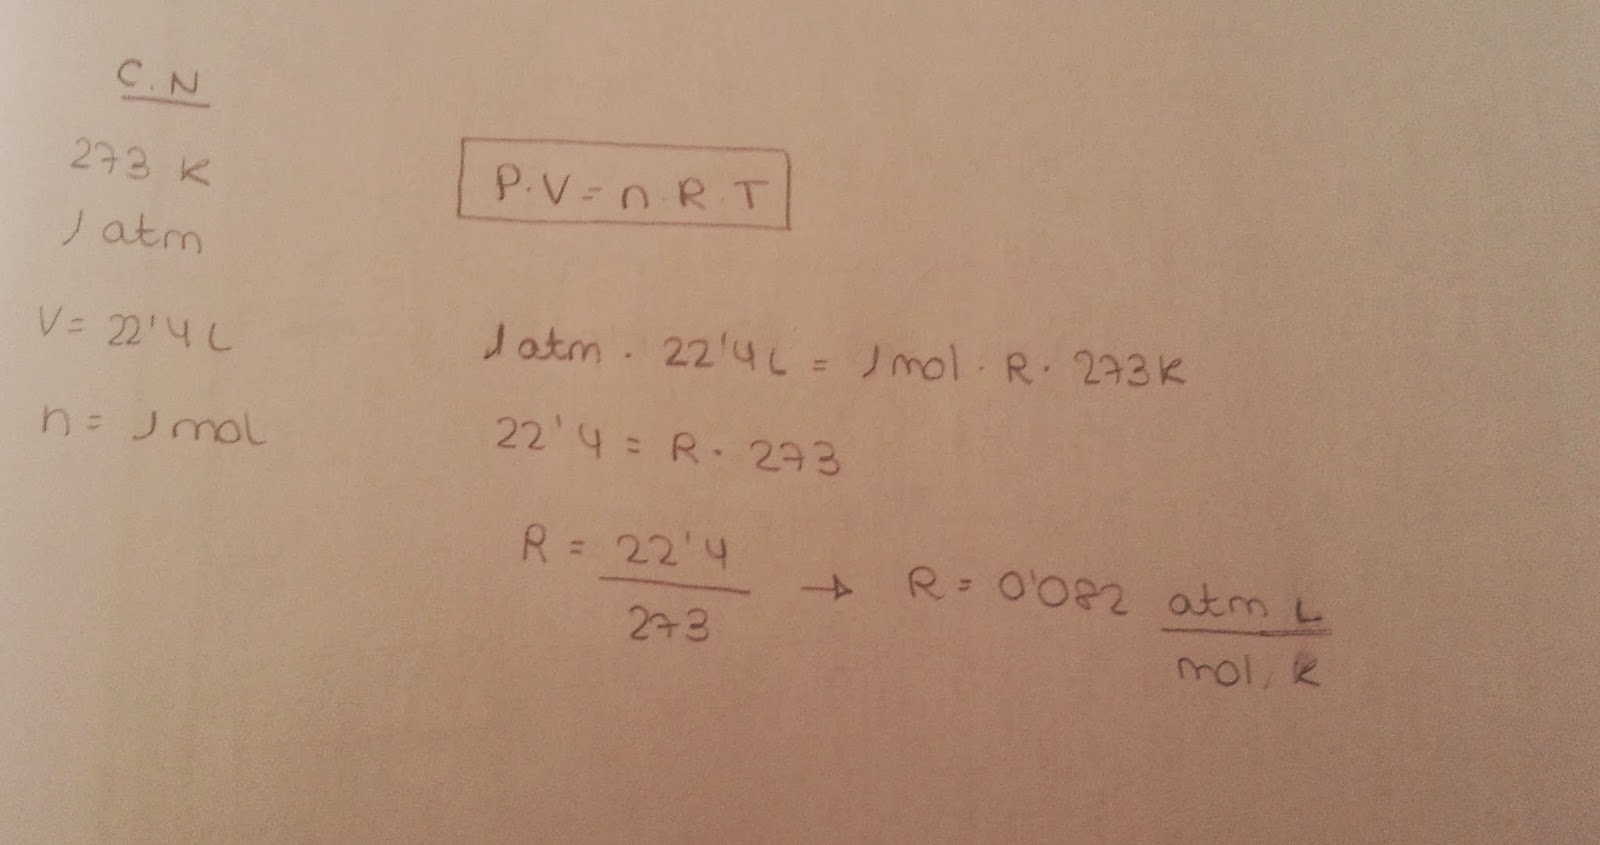 C.N
273 K
1 atm
V = 22'4 L
n = 1 mol
P·V = n·R·T
1 atm · 22'4 L = 1 mol · R · 273 K
22'4 = R · 273
R = 22'4 / 273 → R = 0'082 atm L / mol. K